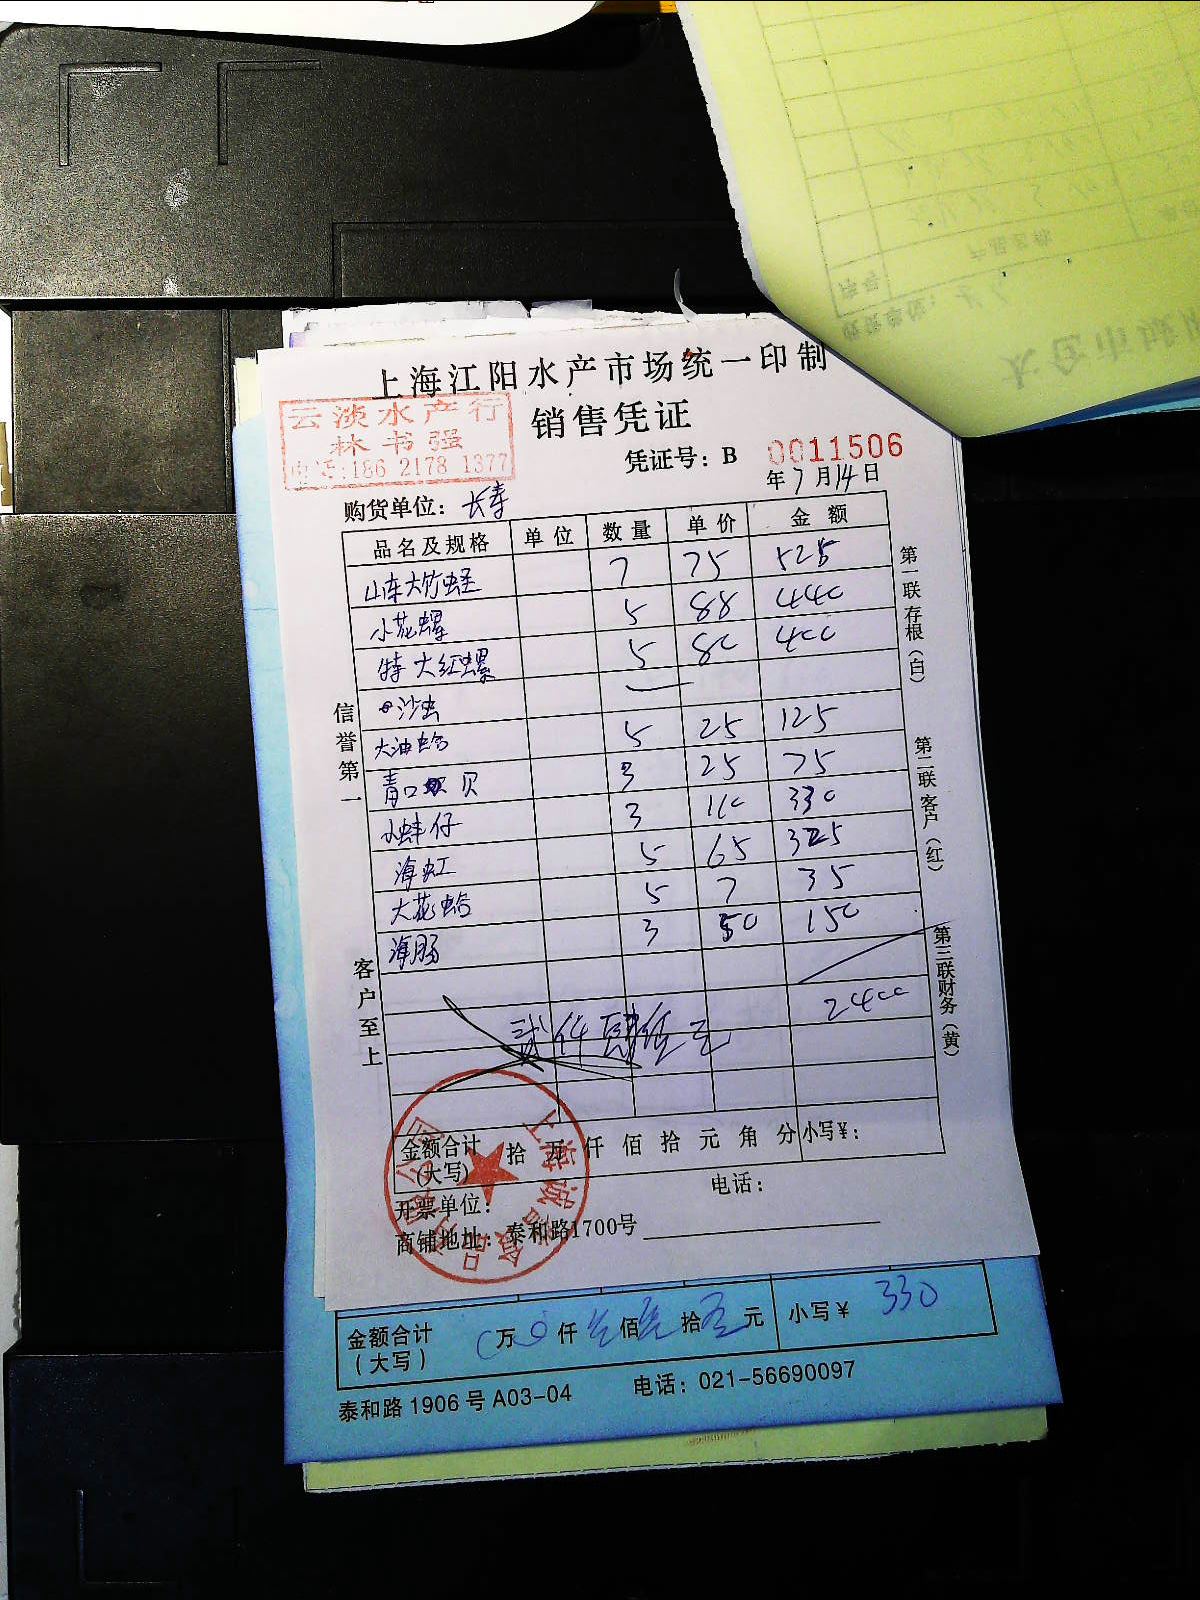 上海江阳水产市场统一印制
销售凭证
云淡水产行
林书强
电话:186 2178 1377
凭证号：B 0011506
年7月14日
购货单位：长寿
品名及规格 单位 数量 单价 金额
山东大竹蛏 7 75 525
小花螺 5 88 440
特大红螺 5 80 400
沙虫 —
大油蛤 5 25 125
青口贝 3 25 75
小蚌仔 3 110 330
海虹 5 65 325
大花蛤 5 7 35
海肠 3 50 150
2400
贰仟肆佰元
金额合计(大写) 拾 万 仟 佰 拾 元 角 分 小写¥：
开票单位： 电话：
商铺地址：泰和路1700号
信誉第一
客户至上
第一联存根（白）
第二联客户（红）
第三联财务（黄）
金额合计（大写） 万 仟 佰 拾 元 小写¥ 330
泰和路1906号A03-04 电话：021-56690097
产品名称
序号